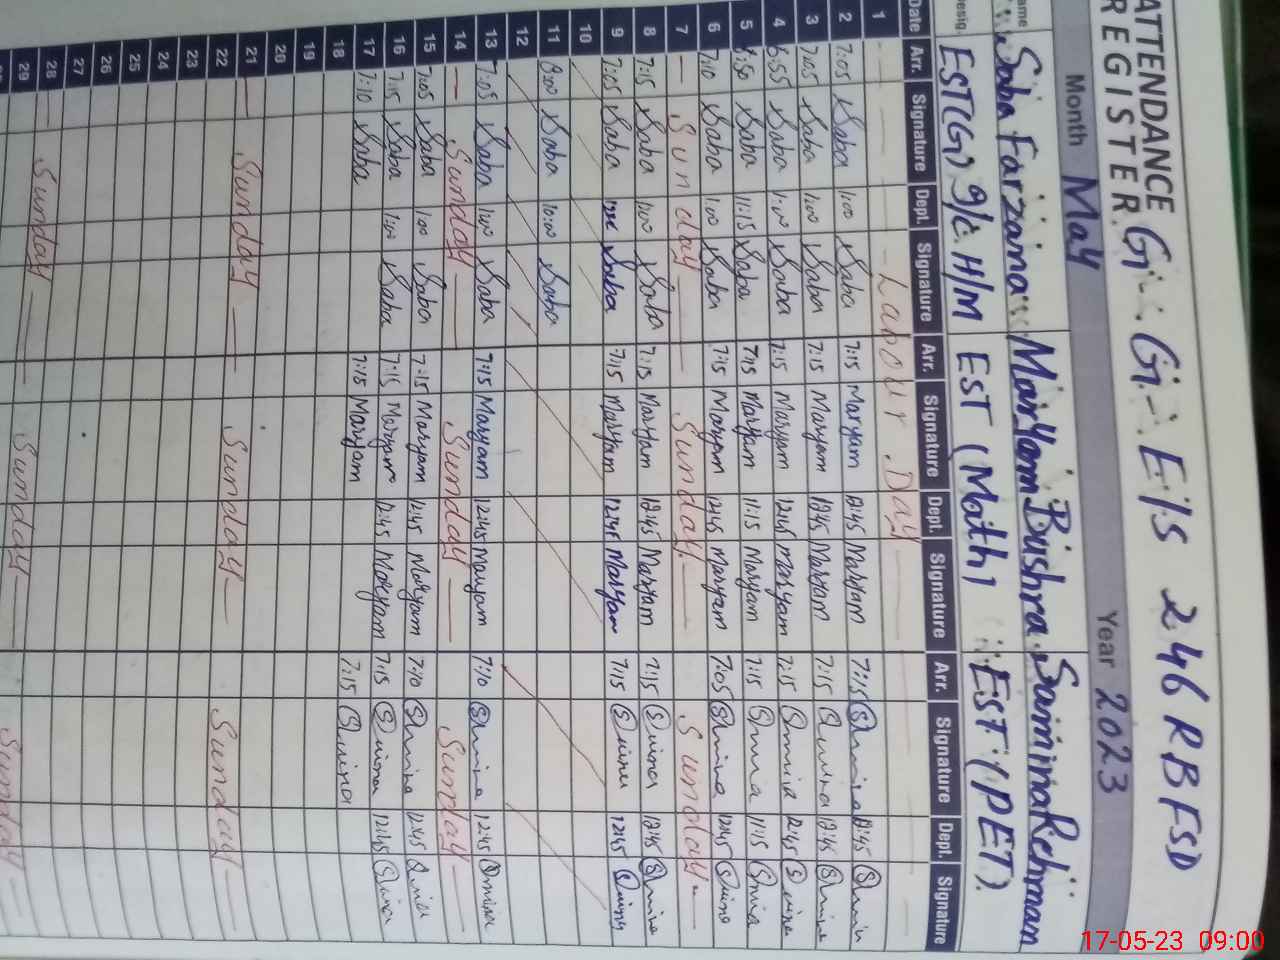 ATTENDANCE REGISTER G.G.E/S 246 RB FSD
Month May Year 2023
Name Saba Farzana Maryam Bushra Samina Rehman
Desig. EST(G) I/C H/M EST (Math) EST (PET)
Date Arr. Signature Dept. Signature Arr. Signature Dept. Signature Arr. Signature Dept. Signature
1 Labour Day
2 7:05 Saba 1:00 Saba 7:15 Maryam 12:45 Maryam 7:15 Samina 12:45 Samina
3 7:05 Saba 1:00 Saba 7:15 Maryam 12:45 Maryam 7:15 Samina 12:45 Samina
4 6:55 Saba 1:00 Saba 7:15 Maryam 12:45 Maryam 7:15 Samina 12:45 Samina
5 Saba 11:15 Saba 7:15 Maryam 11:15 Maryam 7:15 Samina 11:45 Samina
6 7:10 Saba 1:00 Saba 7:15 Maryam 12:45 Maryam 7:05 Samina 12:45 Samina
7 Sunday Sunday Sunday
8 7:15 Saba 1:00 Saba 7:15 Maryam 12:45 Maryam 7:15 Samina 12:45 Samina
9 7:05 Saba Saba 7:15 Maryam 12:45 Maryam 7:15 Samina 12:45 Samina
10
11 8:00 Saba 10:00 Saba
12
13 7:05 Saba 1:00 Saba 7:15 Maryam 12:45 Maryam 7:10 Samina 12:45 Samina
14 Sunday Sunday Sunday
15 7:05 Saba 1:00 Saba 7:15 Maryam 12:45 Maryam 7:10 Samina 12:45 Samina
16 7:15 Saba 1:00 Saba 7:15 Maryam 12:45 Maryam 7:15 Samina 12:45 Samina
17 7:10 Saba 7:15 Maryam 7:15 Samina
18
19
20
21 Sunday Sunday Sunday
22
23
24
25
26
27
28 Sunday Sunday Sunday
29
17-05-23 09:00